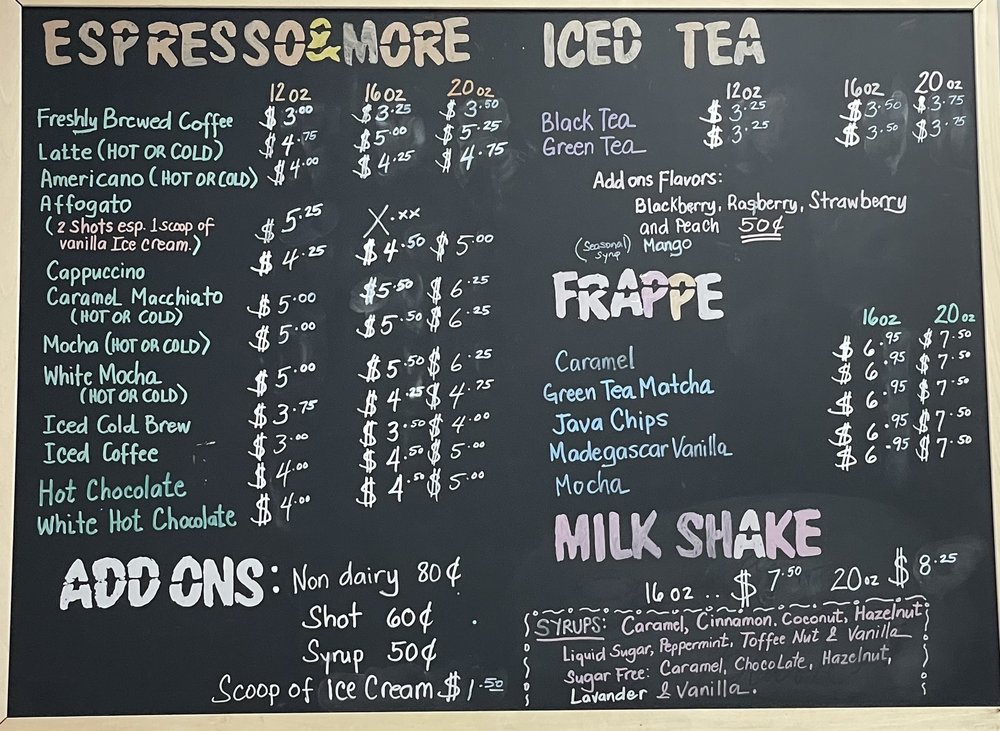 ESPRESSO & MORE
12 oz 16 oz 20 oz
Freshly Brewed Coffee $3.00 $3.25 $3.50
Latte (HOT OR COLD) $4.75 $5.00 $5.25
Americano (HOT OR COLD) $4.00 $4.25 $4.75
Affogato $5.25 X.xx
(2 Shots esp. 1 scoop of
vanilla Ice cream.)
Cappuccino $4.25 $4.50 $5.00
Caramel Macchiato $5.00 $5.50 $6.25
(HOT OR COLD)
Mocha (HOT OR COLD) $5.00 $5.50 $6.25
White Mocha $5.00 $5.50 $6.25
(HOT OR COLD)
Iced Cold Brew $3.75 $4.25 $4.75
Iced Coffee $3.00 $3.50 $4.00
Hot Chocolate $4.00 $4.50 $5.00
White Hot Chocolate $4.00 $4.50 $5.00
ADD ONS: Non dairy 80¢
Shot 60¢
Syrup 50¢
Scoop of Ice Cream $1.50
ICED TEA
12 oz 16 oz 20 oz
Black Tea $3.25 $3.50 $3.75
Green Tea $3.25 $3.50 $3.75
Add ons Flavors:
Blackberry, Rasberry, Strawberry
and Peach 50¢
(Seasonal Syrup) Mango
FRAPPE
16 oz 20 oz
Caramel $6.95 $7.50
Green Tea Matcha $6.95 $7.50
Java Chips $6.95 $7.50
Madegascar Vanilla $6.95 $7.50
Mocha $6.95 $7.50
MILK SHAKE
16 oz .. $7.50 20 oz $8.25
SYRUPS: Caramel, Cinnamon, Coconut, Hazelnut
Liquid Sugar, Peppermint, Toffee Nut & Vanilla
Sugar Free: Caramel, Chocolate, Hazelnut,
Lavander & Vanilla.